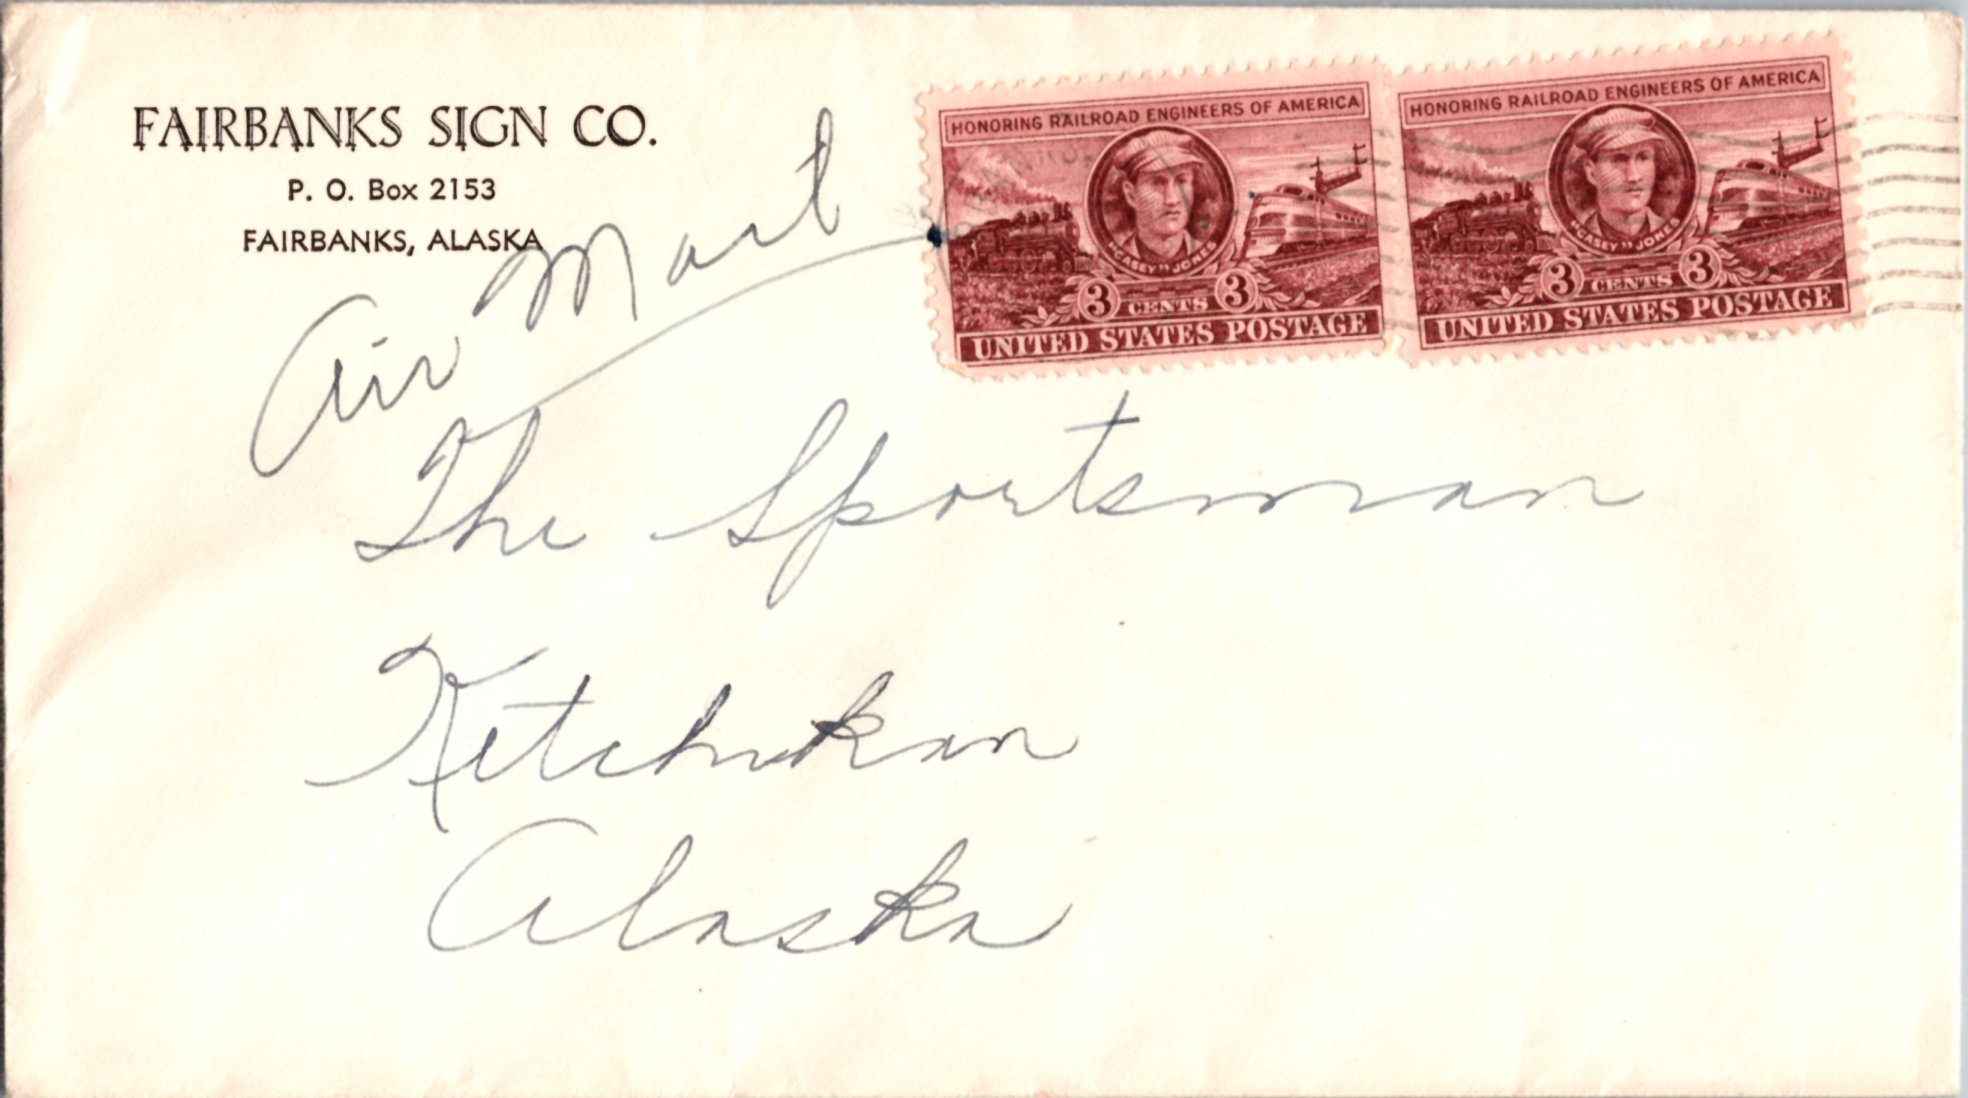 FAIRBANKS SIGN CO.
P. O. Box 2153
FAIRBANKS, ALASKA
Air Mail
HONORING RAILROAD ENGINEERS OF AMERICA
"CASEY" JONES
3 CENTS 3
UNITED STATES POSTAGE
HONORING RAILROAD ENGINEERS OF AMERICA
"CASEY" JONES
3 CENTS 3
UNITED STATES POSTAGE
The Sportsman
Ketchikan
Alaska